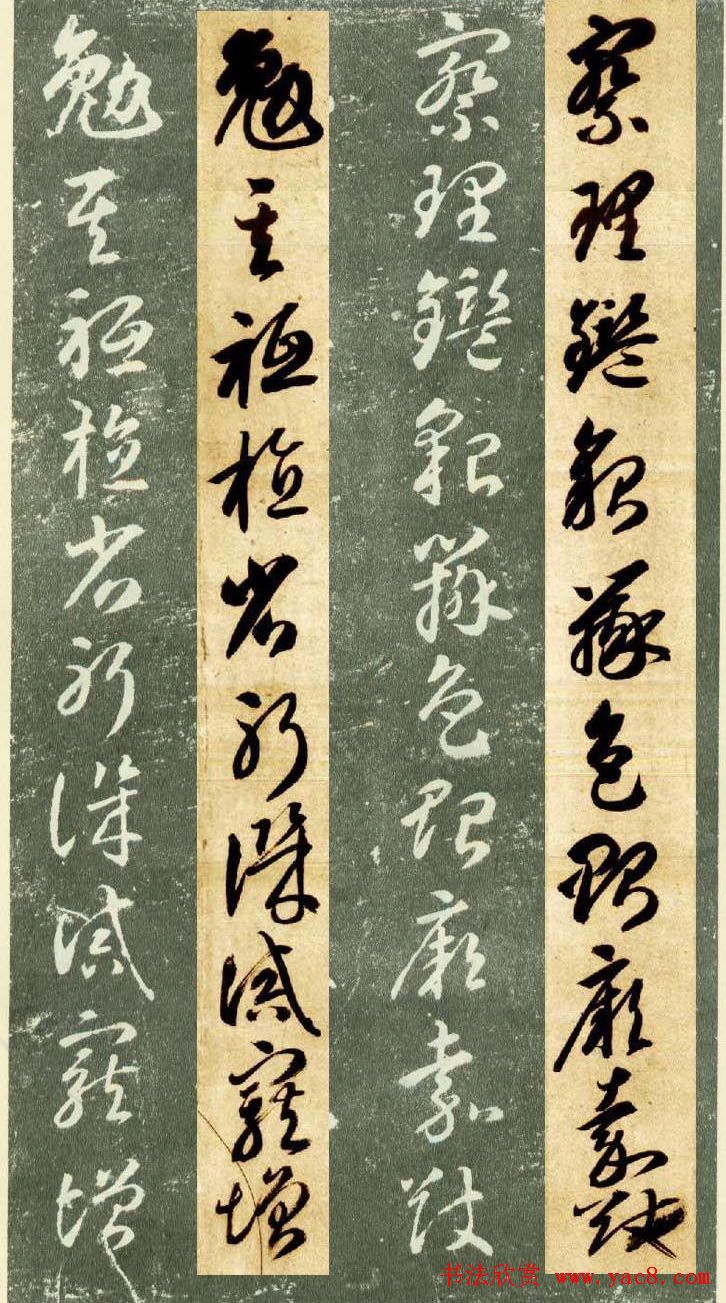 察理鑑貌辨色貽厥嘉猷
察理鑑貌辨色貽厥嘉猷
勉其祗植省躬譏誡寵增
勉其祗植省躬譏誡寵增
书法欣赏 www.yac8.com